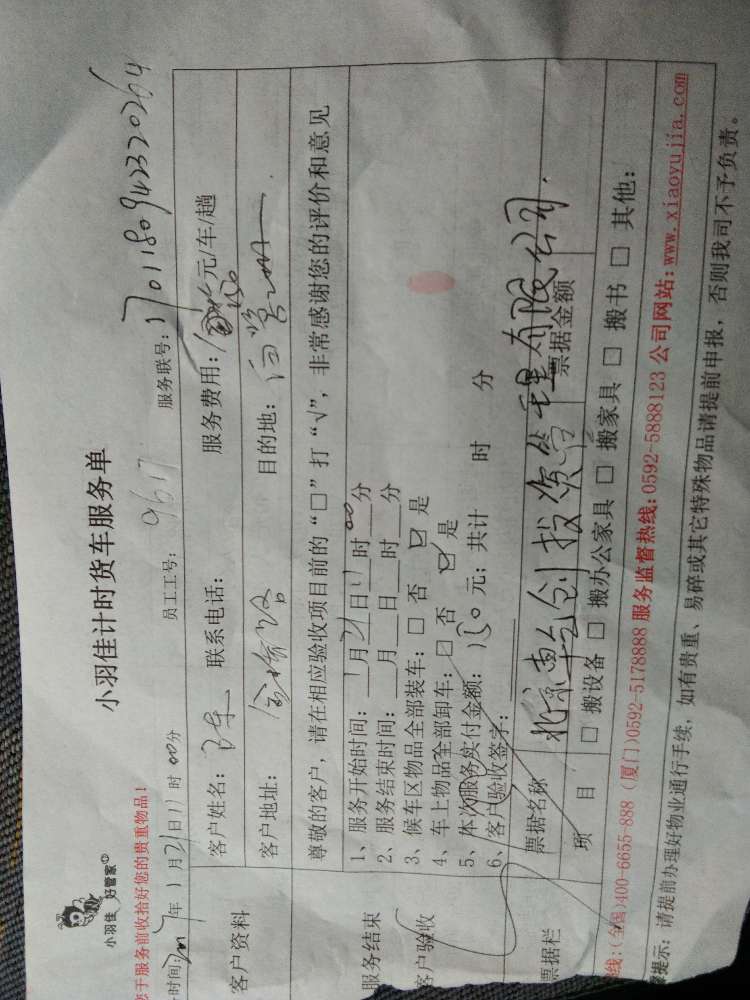 小羽佳 好管家
小羽佳计时货车服务单
您于服务前收拾好您的贵重物品!
时间: 2017年1月21日11时00分 员工工号: 9617 服务联号: 1701180942320264
客户资料
客户姓名: 陈 联系电话: 服务费用: 元/车/趟
客户地址: 金榜路 目的地:
尊敬的客户,请在相应验收项目前的“□”打“√”,非常感谢您的评价和意见
服务结束
客户验收
1、服务开始时间: 1月21日11时00分
2、服务结束时间: 月 日 时 分
3、候车区物品全部装车: □ 否 ☑ 是
4、车上物品全部卸车: □ 否 ☑ 是
5、本次服务实付金额: 150元; 共计 时 分
6、客户验收签字:
票据栏
票据名称 北京 创投资管理有限公司. 票据金额
项 目 □ 搬设备 □ 搬办公家具 □ 搬家具 □ 搬书 □ 其他:
线:(全国)400-6655-888 (厦门)0592-5178888 服务监督热线: 0592-5888123 公司网站: www.xiaoyujia.com
提示: 请提前办理好物业通行手续, 如有贵重、易碎或其它特殊物品请提前申报, 否则我司不予负责。